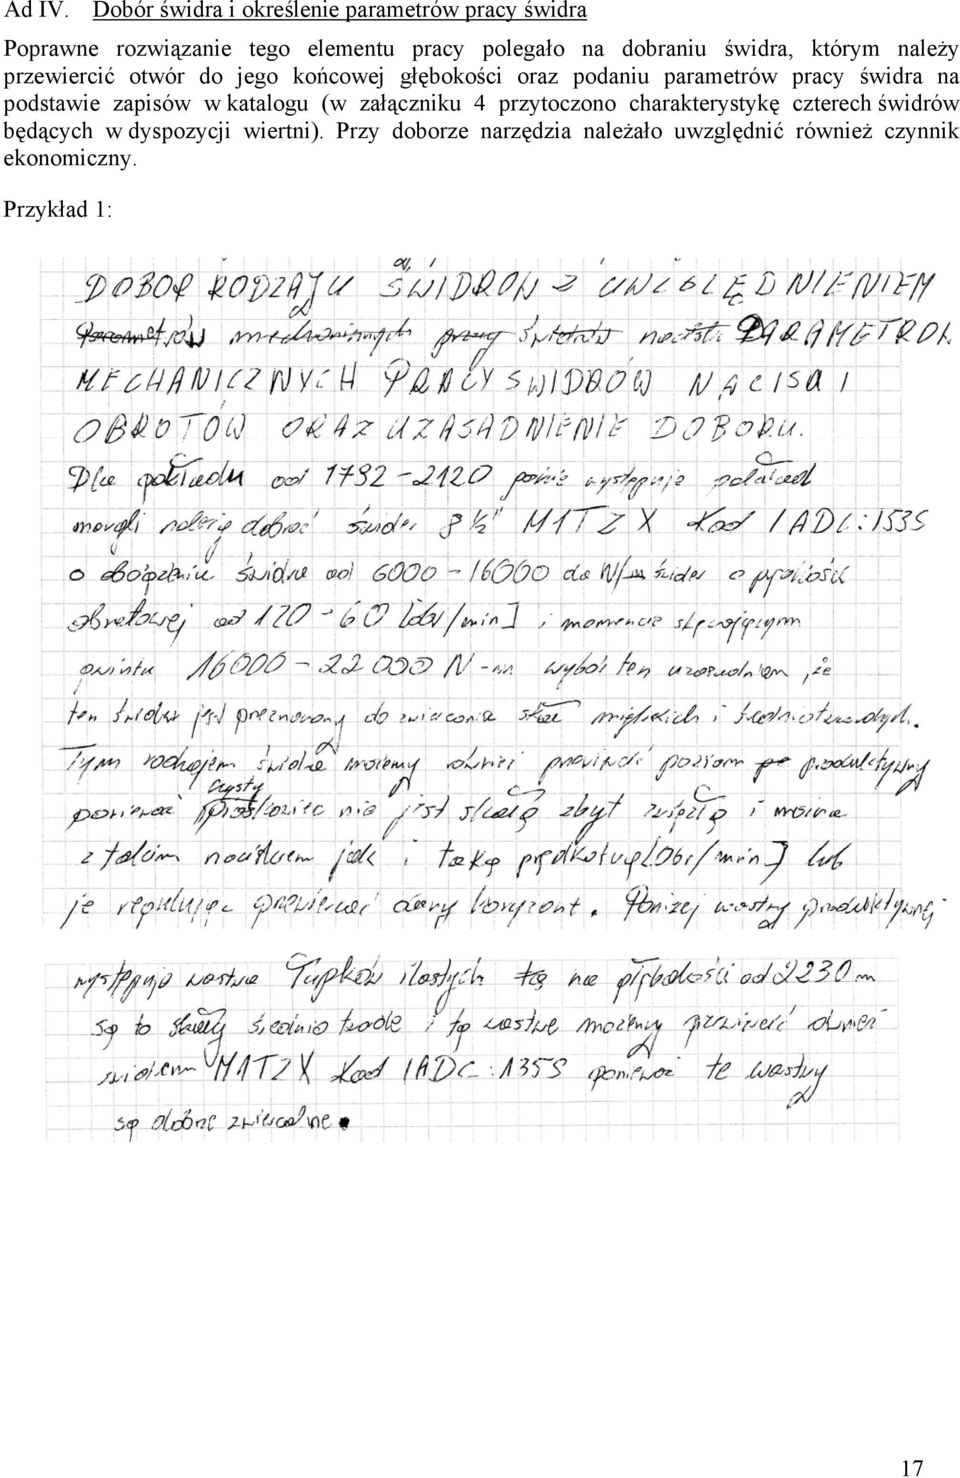 Ad IV. Dobór świdra i określenie parametrów pracy świdra
Poprawne rozwiązanie tego elementu pracy polegało na dobraniu świdra, którym należy
przewiercić otwór do jego końcowej głębokości oraz podaniu parametrów pracy świdra na
podstawie zapisów w katalogu (w załączniku 4 przytoczono charakterystykę czterech świdrów
będących w dyspozycji wiertni). Przy doborze narzędzia należało uwzględnić również czynnik
ekonomiczny.
Przykład 1:
DOBOR RODZAJU ŚWIDRÓW Z UWZGLĘDNIENIEM
PARAMETRÓW
MECHANICZNYCH PRACY SWIDRÓW NACISA I
OBROTÓW ORAZ UZASADNIENIE DOBORU.
Dla pokładu od 1792-2120 występuje pokład
margli należy dobrać świder 8 ½" M1TZX Kod IADC:153S
o obciążeniu świdra od 6000-16000 daN/świder o prędkości
obrotowej od 120-60 [obr/min] i momencie skręcającym
gwintu 16000-22000 N-m wybór ten uzasadniam, że
ten świder jest przeznaczony do zwiercania skał miękkich i średniotwardych.
Tym rodzajem świdra możemy również przewiercić poziom produktywny
ponieważ czysty piaskowiec nie jest skałą zbyt zwięzłą i można
z takim naciskiem jak i taką prędkością [Obr/min] lub
je regulując przewiercać dany horyzont. Poniżej warstwy produktywnej
występują warstwa łupków ilastych są na głębokości od 2230 m
są to skały średnio twarde i tę warstwę możemy przewiercić również
świdrem M1TZX Kod IADC:135S ponieważ te warstwy
są dobrze zwiercalne.
17